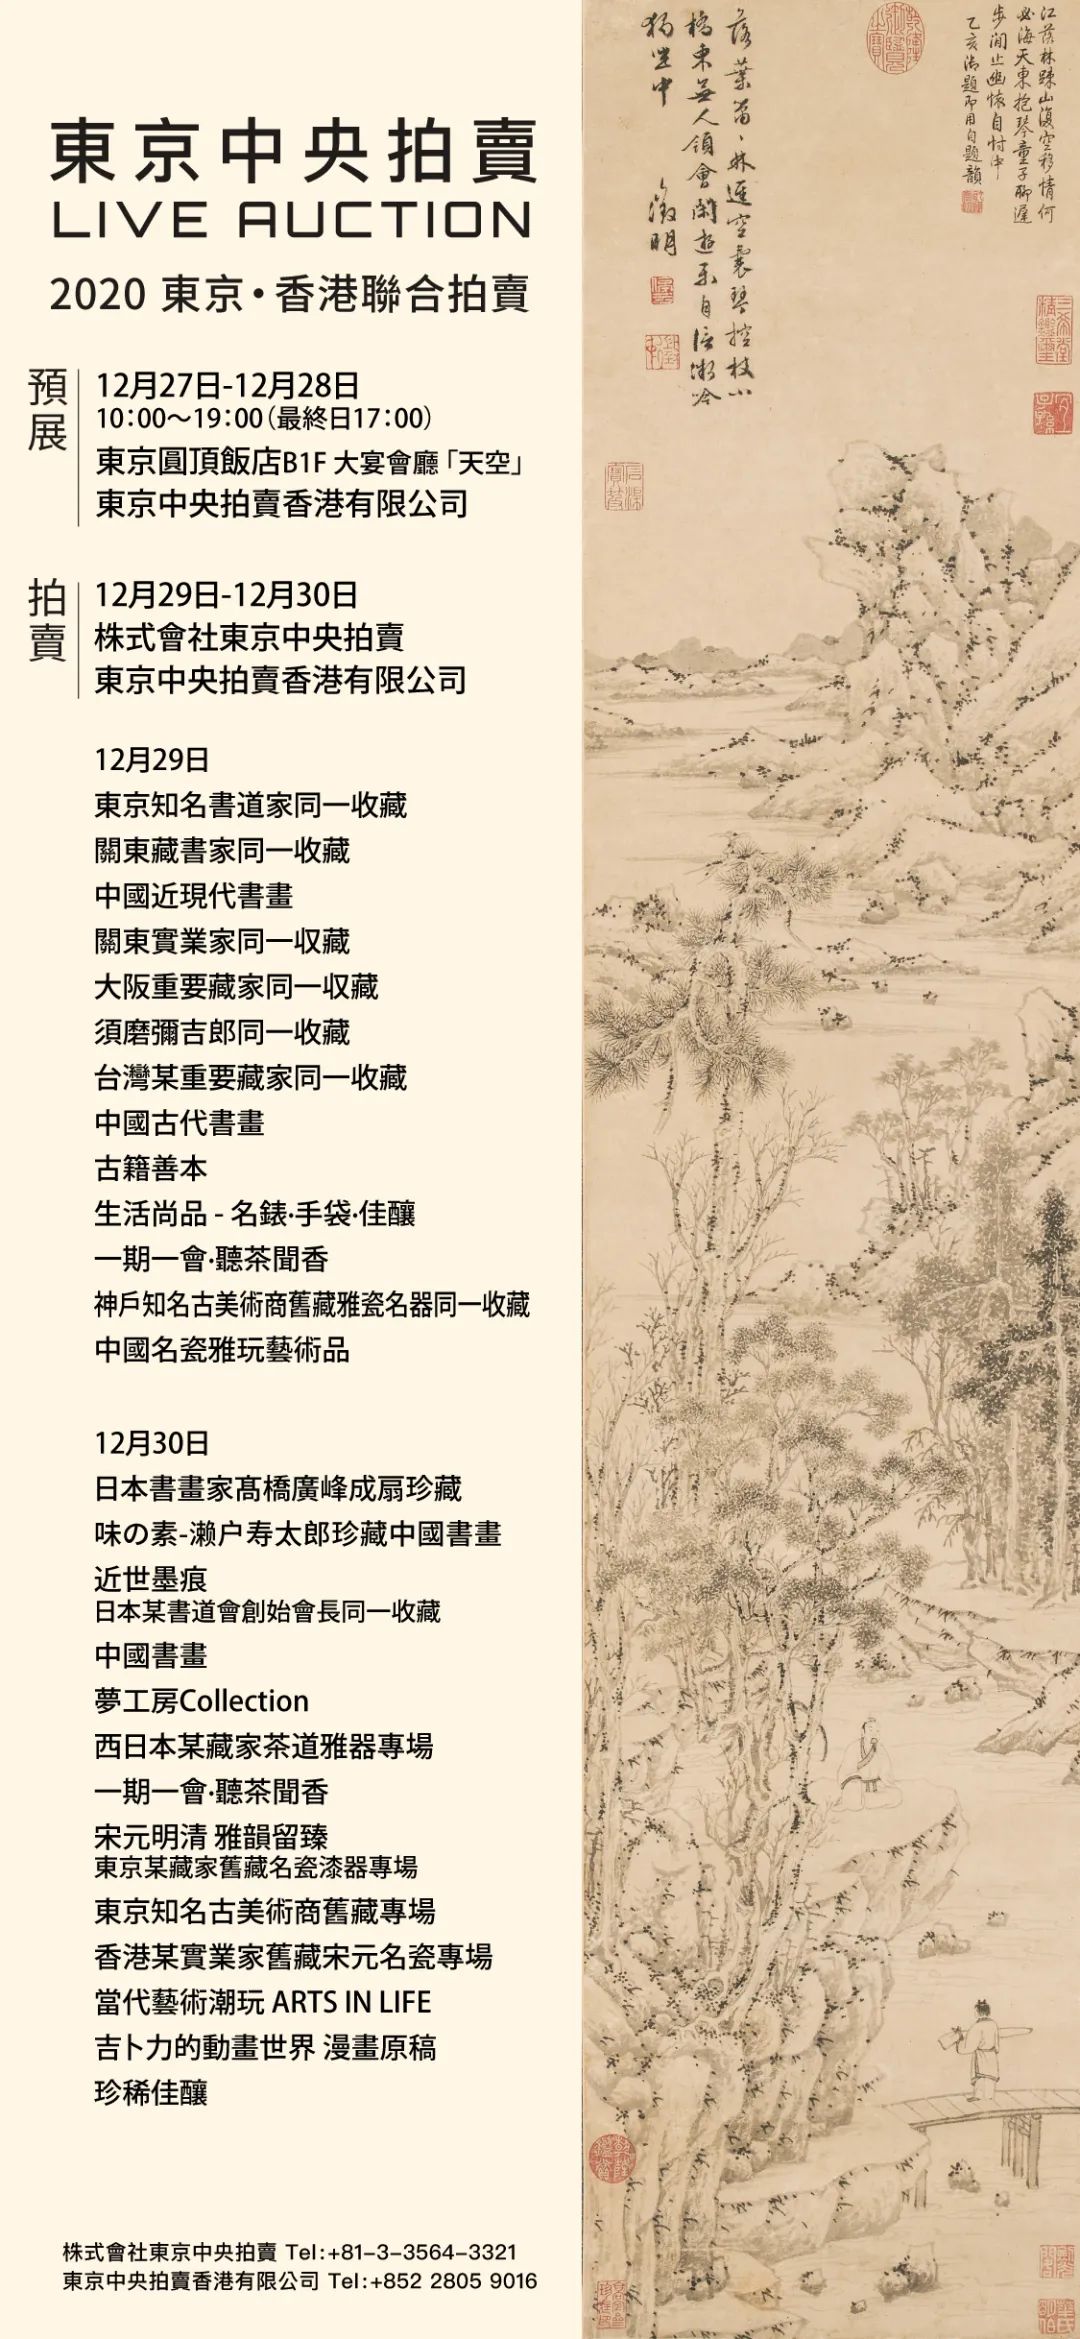 東京中央拍賣
LIVE AUCTION
2020 東京・香港聯合拍賣
預展
12月27日-12月28日
10：00～19：00（最終日17：00）
東京圓頂飯店B1F 大宴會廳「天空」
東京中央拍賣香港有限公司
拍賣
12月29日-12月30日
株式會社東京中央拍賣
東京中央拍賣香港有限公司
12月29日
東京知名書道家同一收藏
關東藏書家同一收藏
中國近現代書畫
關東實業家同一収藏
大阪重要藏家同一収藏
須磨彌吉郎同一收藏
台灣某重要藏家同一收藏
中國古代書畫
古籍善本
生活尚品 - 名錶·手袋·佳釀
一期一會·聽茶聞香
神戶知名古美術商舊藏雅瓷名器同一收藏
中國名瓷雅玩藝術品
12月30日
日本書畫家髙橋廣峰成扇珍藏
味の素-瀨户寿太郎珍藏中國書畫
近世墨痕
日本某書道會創始會長同一收藏
中國書畫
夢工房Collection
西日本某藏家茶道雅器專場
一期一會·聽茶聞香
宋元明清 雅韻留臻
東京某藏家舊藏名瓷漆器專場
東京知名古美術商舊藏專場
香港某實業家舊藏宋元名瓷專場
當代藝術潮玩 ARTS IN LIFE
吉卜力的動畫世界 漫畫原稿
珍稀佳釀
株式會社東京中央拍賣 Tel:+81-3-3564-3321
東京中央拍賣香港有限公司 Tel:+852 2805 9016
江落林疎山復空移情何
必海天東抱琴童子聊遲
步間止幽懷自忖中
乙亥御題即用自題韻
橋東無人領會閑遊樂自
獨坐中
徵明